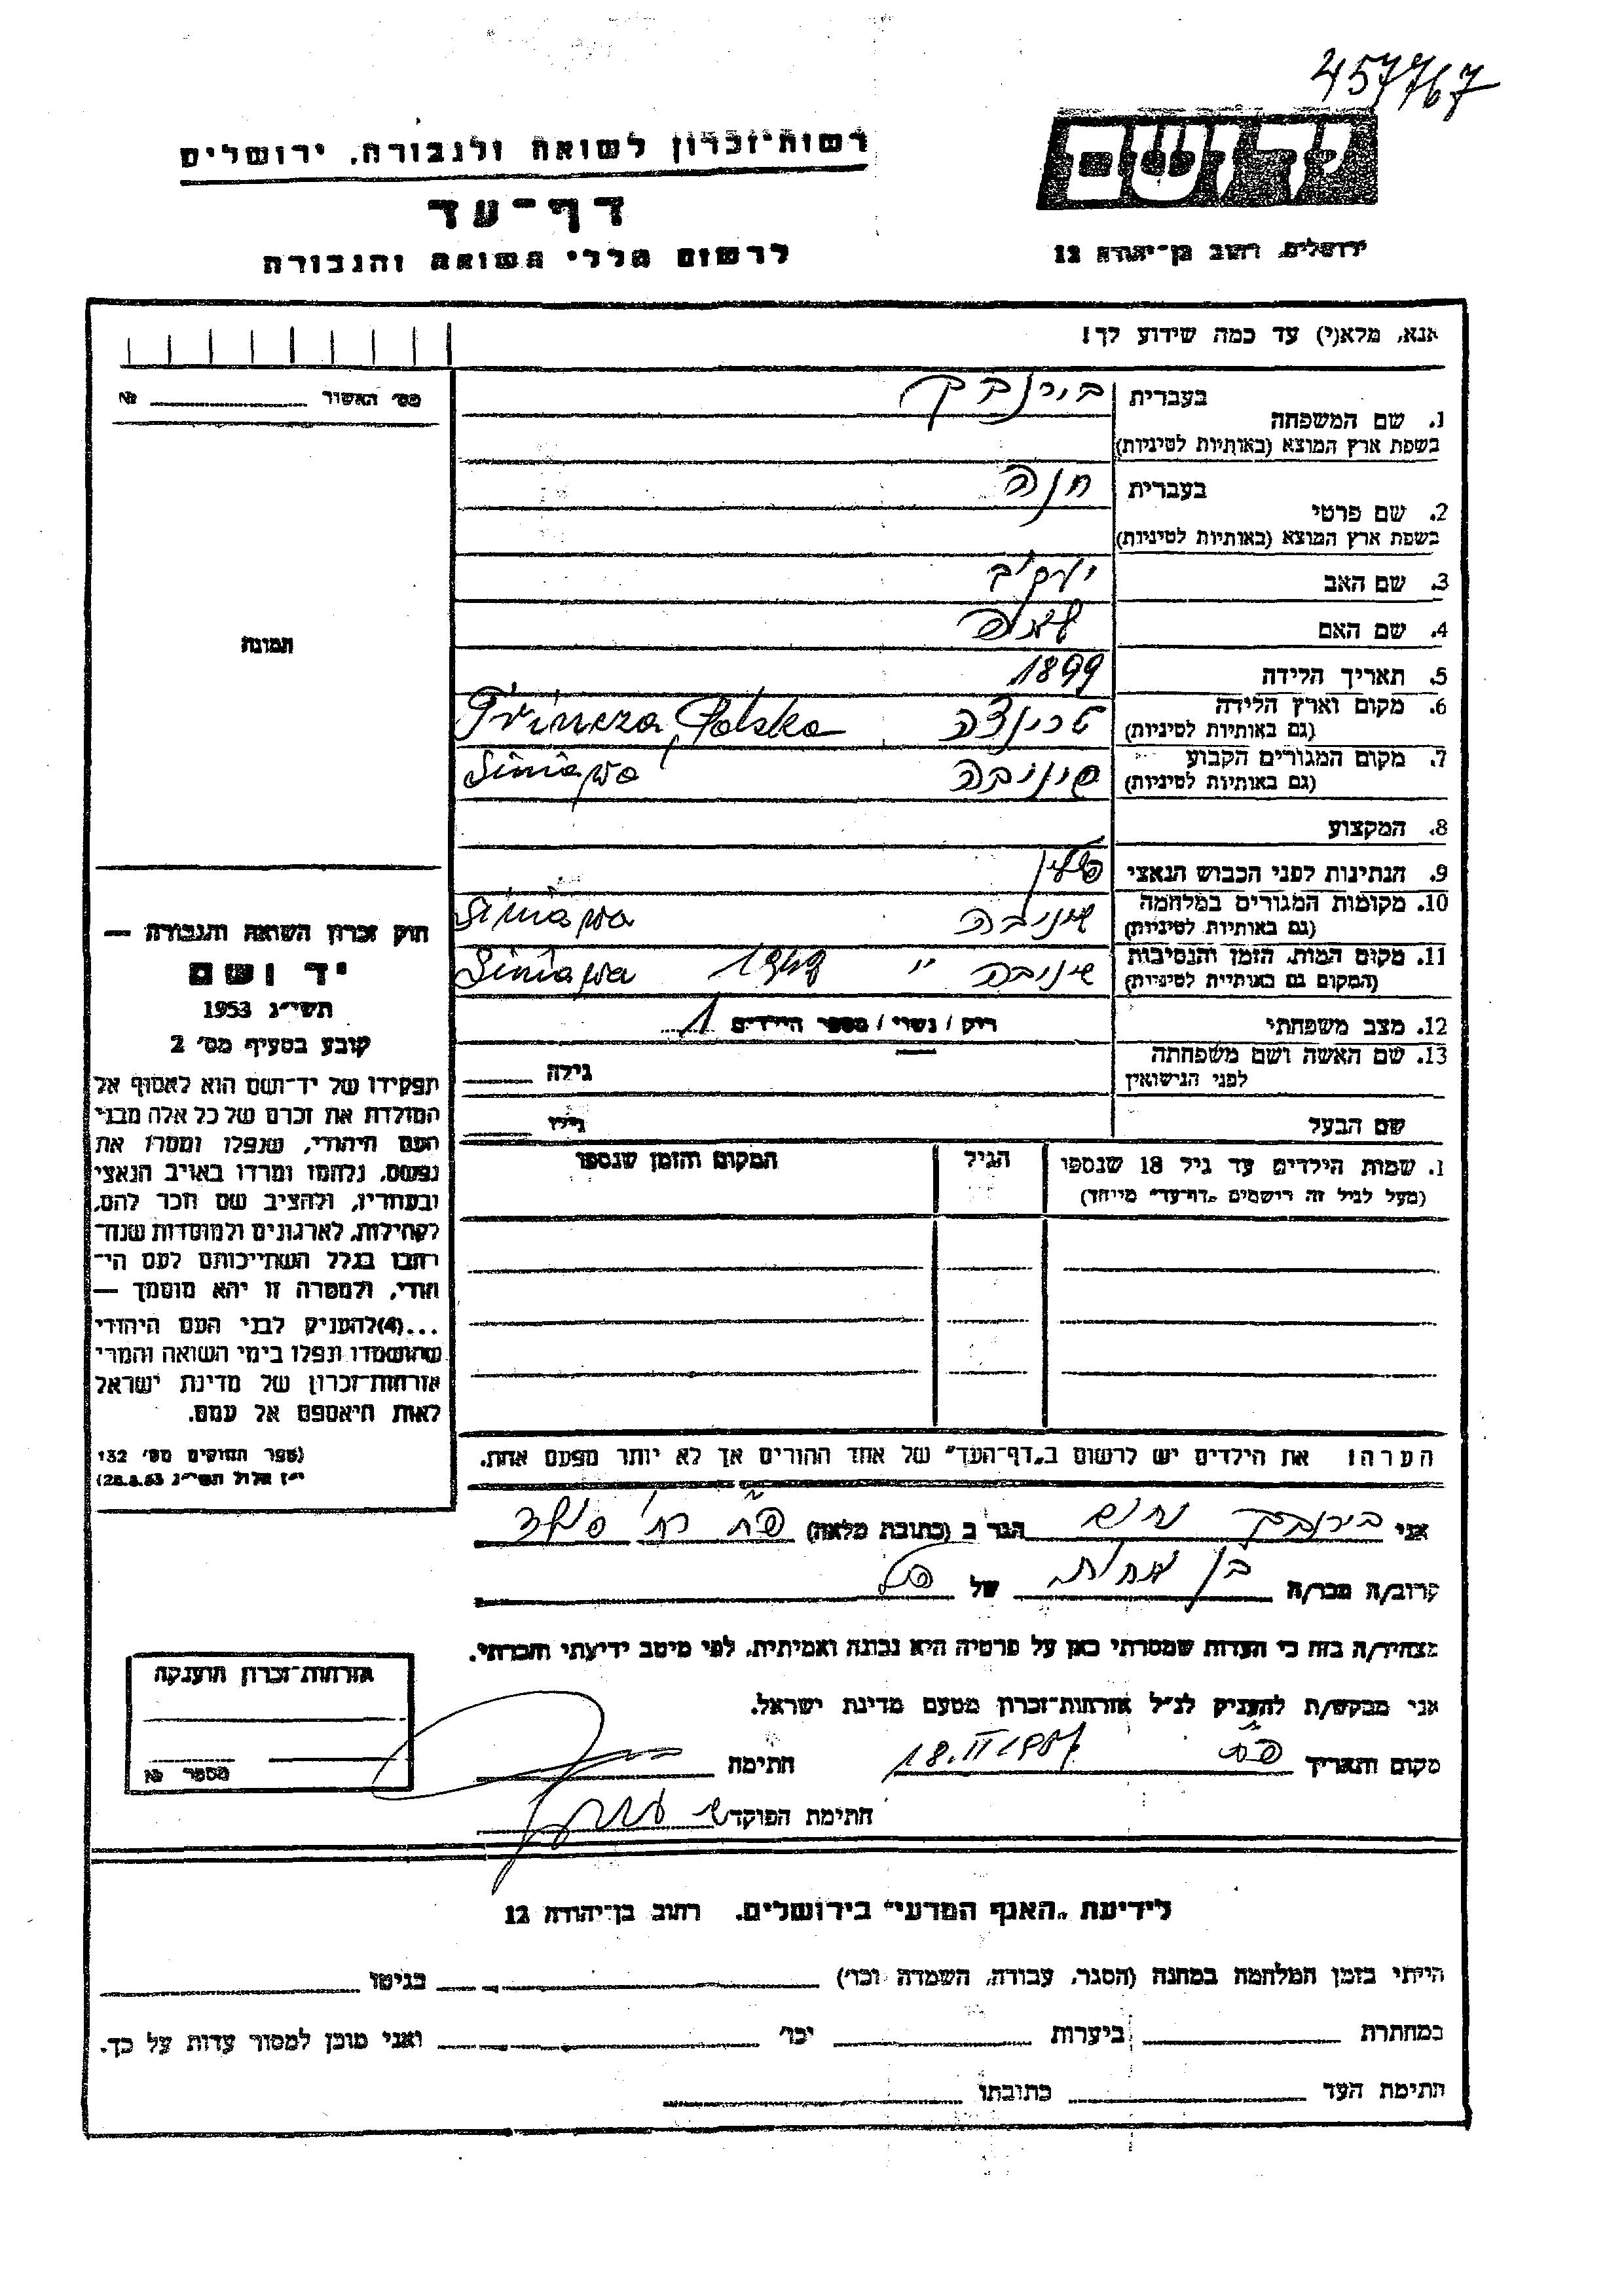 457767
ידושם
רשות־זכרון לשואה ולגבורה, ירושלים
דף־עד
לרשום חללי השואה והגבורה
ירושלים, רחוב בן־יהודה 12
אנא, מלא(י) עד כמה שידוע לך!
מס' האשור № 
1. שם המשפחה בעברית בירנבק
בשפת ארץ המוצא (באותיות לטיניות)
2. שם פרטי בעברית חנה
בשפת ארץ המוצא (באותיות לטיניות)
3. שם האב יעקיב
4. שם האם
תמונה
5. תאריך הלידה 1899
6. מקום וארץ הלידה טרינצה Princza, Polska
(גם באותיות לטיניות)
7. מקום המגורים הקבוע שינובה Siniawa
(גם באותיות לטיניות)
8. המקצוע
9. הנתינות לפני הכבוש הנאצי פולין
10. מקומות המגורים במלחמה שינובה Siniawa
(גם באותיות לטיניות)
11. מקום המות, הזמן והנסיבות שינובה Siniawa
(המקום גם באותיות לטיניות)
12. מצב משפחתי רוק / נשוי / מספר הילדים 1
13. שם האשה ושם משפחתה גילה
לפני הנישואין
שם הבעל גילו
1. שמות הילדים עד גיל 18 שנספו הגיל המקום והזמן שנספו
(מעל לגיל זה רושמים „דף־עד" מיוחד)
חוק זכרון השואה והגבורה —
יד ושם
תשי"ג 1953
קובע בסעיף מס' 2
תפקידו של יד־ושם הוא לאסוף אל
המולדת את זכרם של כל אלה מבני
העם היהודי, שנפלו ומסרו את
נפשם, נלחמו ומרדו באויב הנאצי
ובעוזריו, ולהציב שם וזכר להם,
לקהילות, לארגונים ולמוסדות שנח־
רבו בגלל השתייכותם לעם הי־
הודי, ולמטרה זו יהא מוסמך —
...(4)להעניק לבני העם היהודי
שהושמדו ונפלו בימי השואה והמרי
אזרחות־זכרון של מדינת ישראל
לאות היאספם אל עמם.
(ספר החוקים מס' 132
י"ז אלול תשי"ג 28.8.53)
הערה! את הילדים יש לרשום ב„דף־העד" של אחד ההורים אך לא יותר מפעם אחת.
אני בירנבק הגר ב (כתובת מלאה) פ"ת רח'
קרוב/ה מכר/ה בן של
מצהיר/ה בזה כי העדות שמסרתי כאן על פרטיה היא נכונה ואמיתית, לפי מיטב ידיעתי והכרתי.
אני מבקש/ת להעניק לנ"ל אזרחות־זכרון מטעם מדינת ישראל.
מקום ותאריך פ"ת 18.II.1957 חתימה
חתימת הפוקד
אזרחות־זכרון הוענקה
מספר №
לידיעת „האגף המדעי" בירושלים, רחוב בן־יהודה 12
הייתי בזמן המלחמה במחנה (הסגר, עבודה, השמדה וכו') בגיטו
במחתרת ביערות וכו' ואני מוכן למסור עדות על כך.
חתימת העד כתובתו